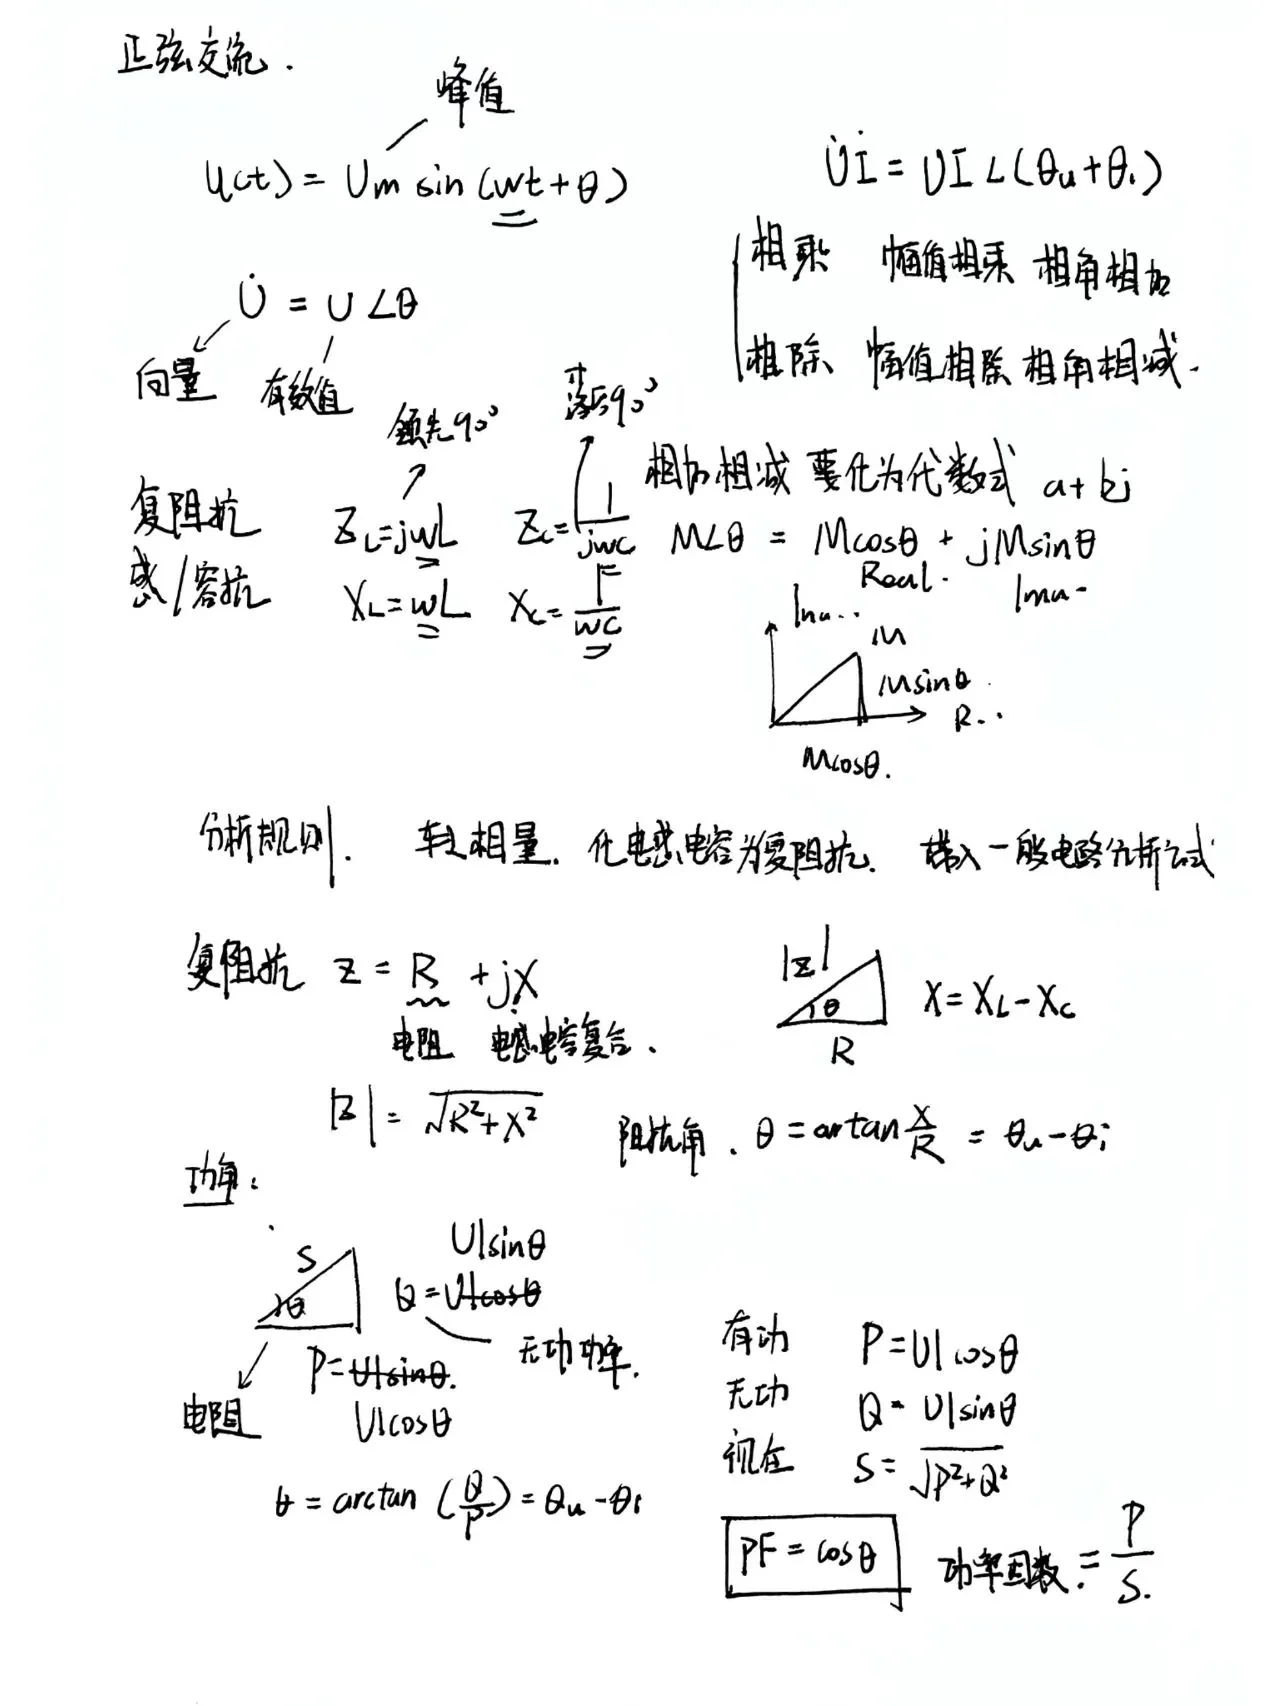 正弦交流.
峰值
u(t) = Um sin (wt + θ)
U̇İ = UI∠(θu+θi)
相乘 幅值相乘 相角相加
相除 幅值相除 相角相减.
U̇ = U∠θ
向量 有效值
领先90° 落后90°
相加相减 要化为代数式 a+bj
复阻抗 ZL=jwL Zc=1/jwc
M∠θ = Mcosθ + jMsinθ
Real. Ima-
感/容抗 XL=wL Xc=1/wc
Ima..
M
Msinθ
R..
Mcosθ.
分析规则. 转相量. 化电感电容为复阻抗. 带入一般电路分析公式
复阻抗 Z = R + jX
电阻 电感电容复合.
|Z|
θ
R
X = XL - Xc
|Z| = √R²+X²
阻抗角. θ = artan X/R = θu-θi
功率:
S
θ
UIsinθ
Q = UIcosθ
无功功率.
P = UIsinθ.
UIcosθ
电阻
θ = arctan (Q/P) = θu-θi
有功 P=UIcosθ
无功 Q=UIsinθ
视在 S=√P²+Q²
PF = cosθ 功率因数. = P/S.